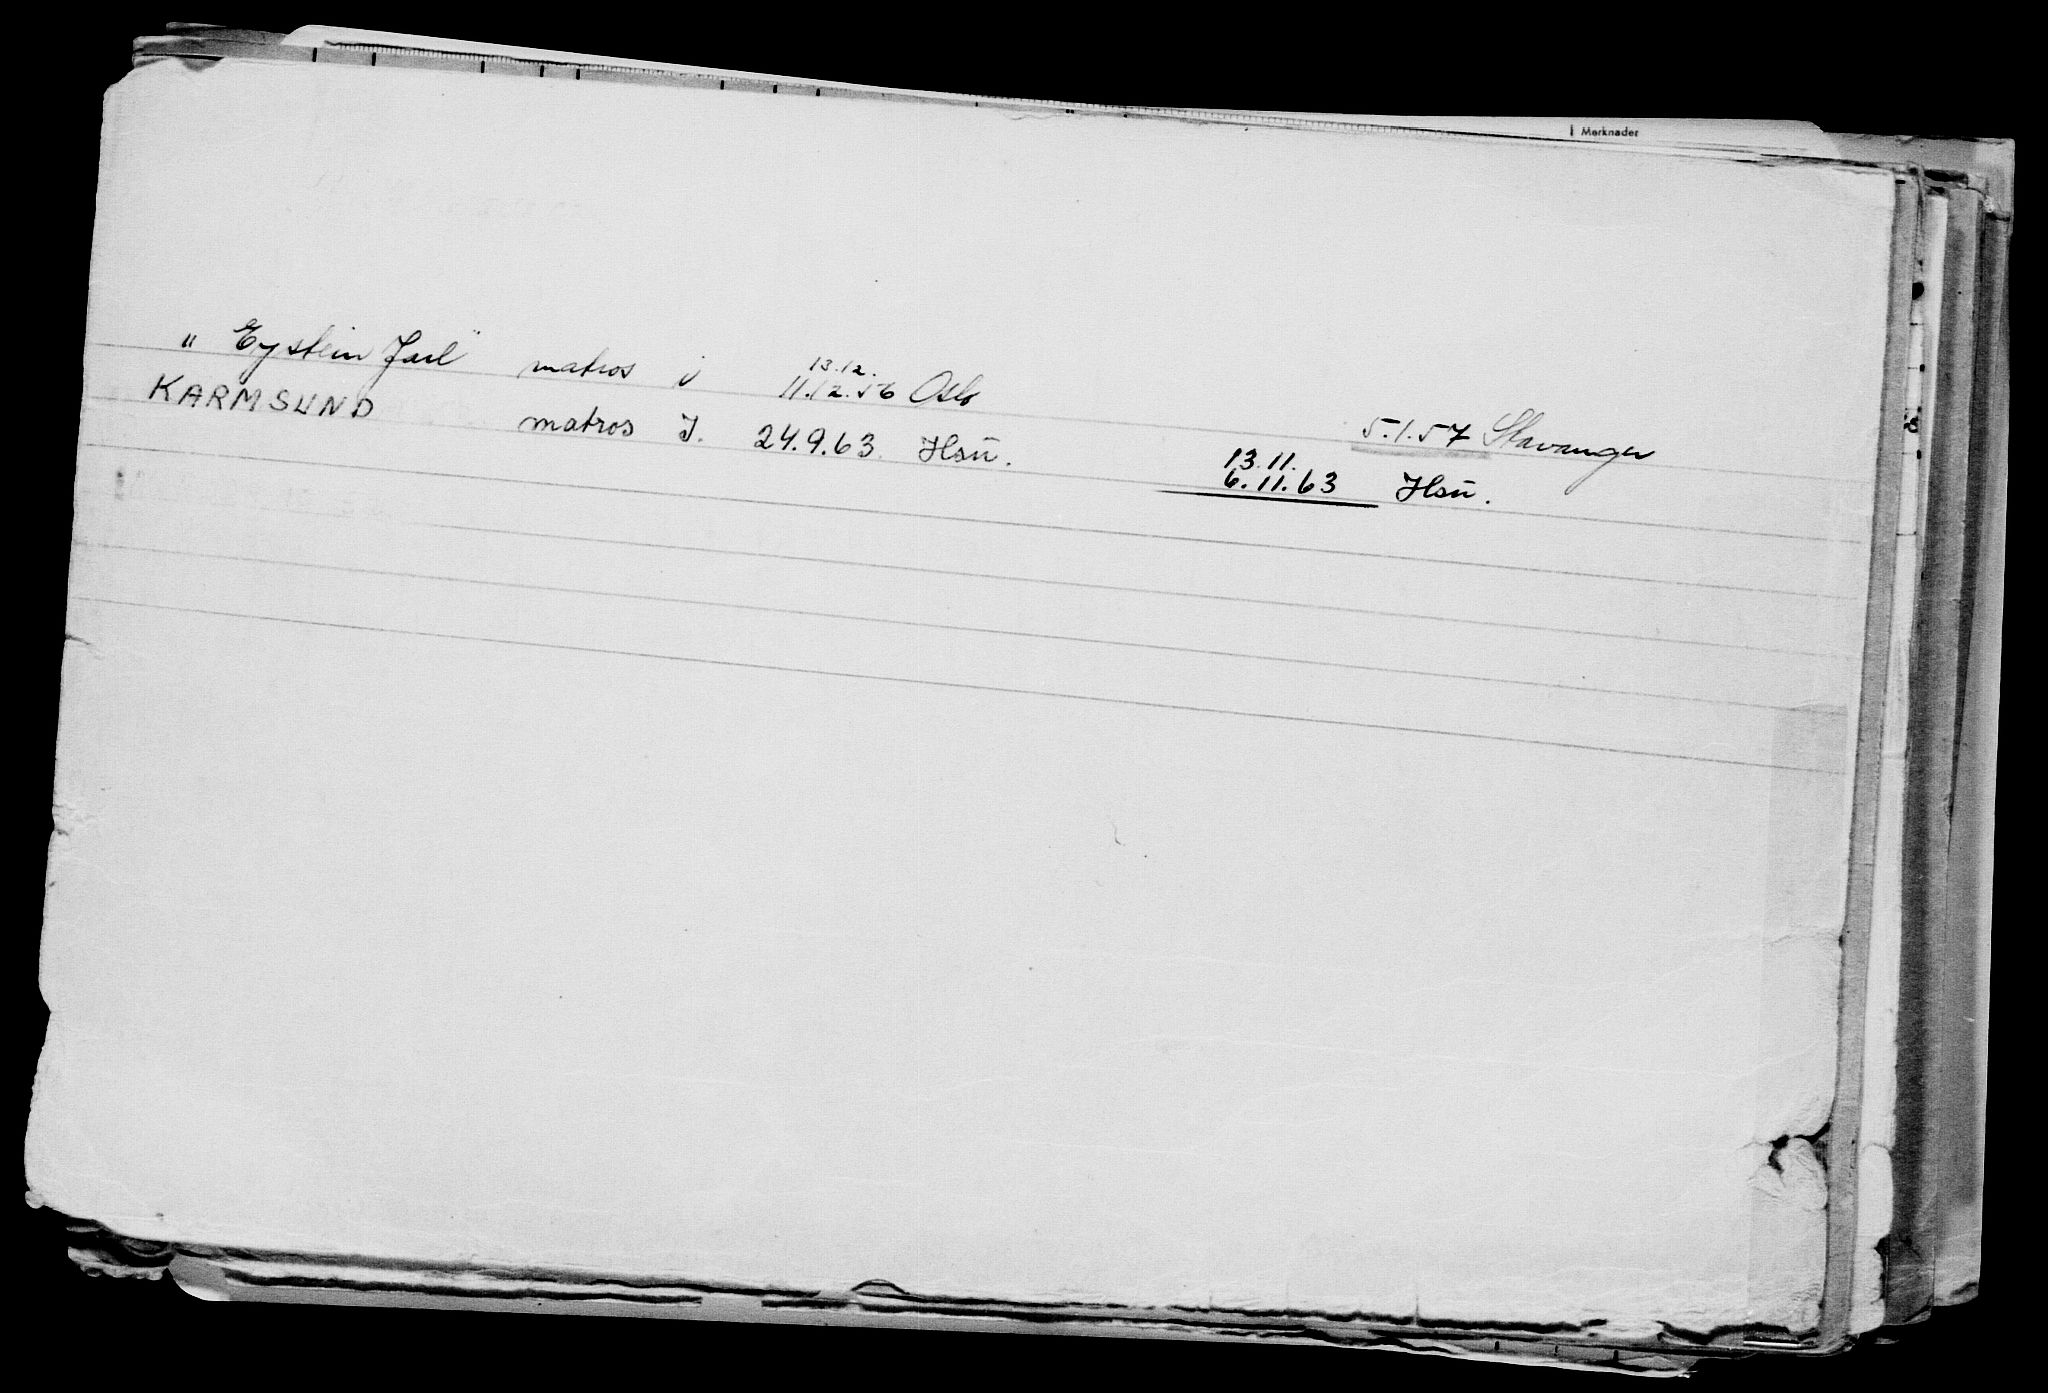 Merknader
"Eystein Jarl" matros i 13.12. 11.12.56 Oslo 5.1.57 Stavanger
KARMSUND matros I. 24.9.63 Hsū. 13.11. 6.11.63 Hsū.